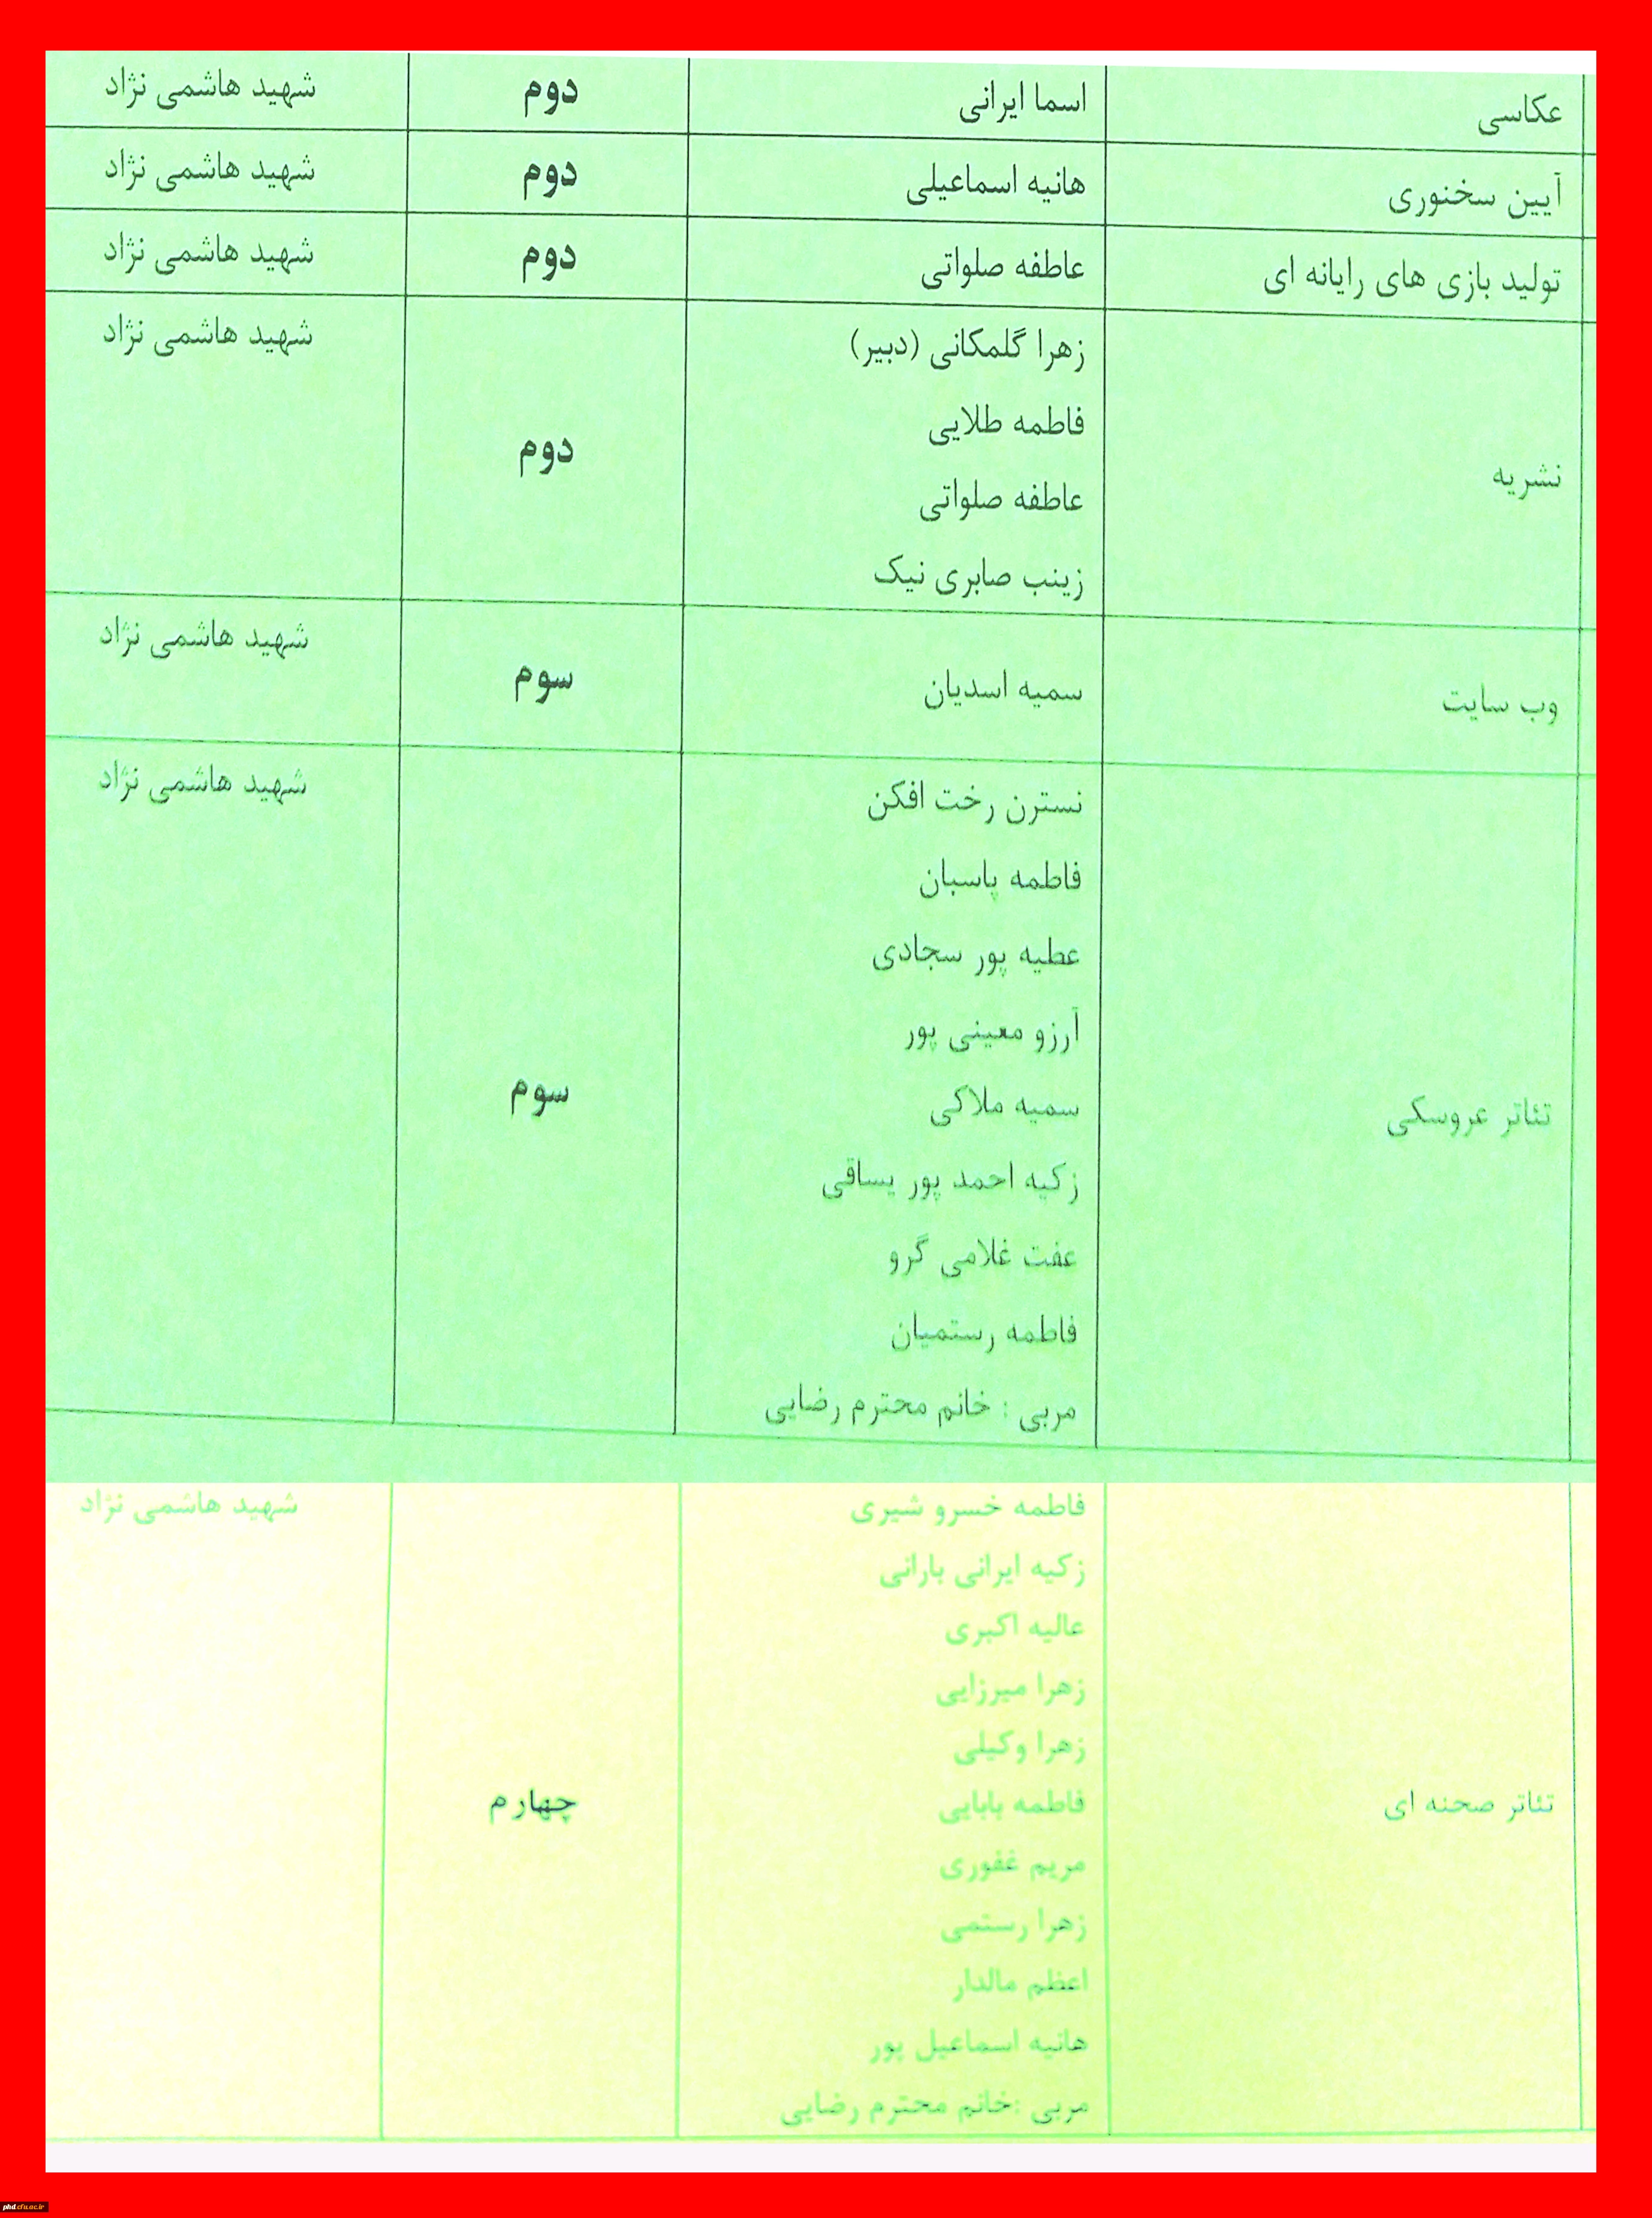 عکاسی اسما ایرانی دوم شهید هاشمی نژاد
آیین سخنوری هانیه اسماعیلی دوم شهید هاشمی نژاد
تولید بازی های رایانه ای عاطفه صلواتی دوم شهید هاشمی نژاد
نشریه
زهرا گلمکانی (دبیر)
فاطمه طلایی
عاطفه صلواتی
زینب صابری نیک
دوم
شهید هاشمی نژاد
وب سایت سمیه اسدیان سوم شهید هاشمی نژاد
تئاتر عروسکی
نسترن رخت افکن
فاطمه پاسبان
عطیه پور سجادی
آرزو معینی پور
سمیه ملاکی
زکیه احمد پور یساقی
عفت غلامی گرو
فاطمه رستمیان
مربی : خانم محترم رضایی
سوم
شهید هاشمی نژاد
تئاتر صحنه ای
فاطمه خسرو شیری
زکیه ایرانی بارانی
عالیه اکبری
زهرا میرزایی
زهرا وکیلی
فاطمه بابایی
مریم غفوری
زهرا رستمی
اعظم مالدار
هانیه اسماعیل پور
مربی :خانم محترم رضایی
چهارم
شهید هاشمی نژاد
phd.cfu.ac.ir